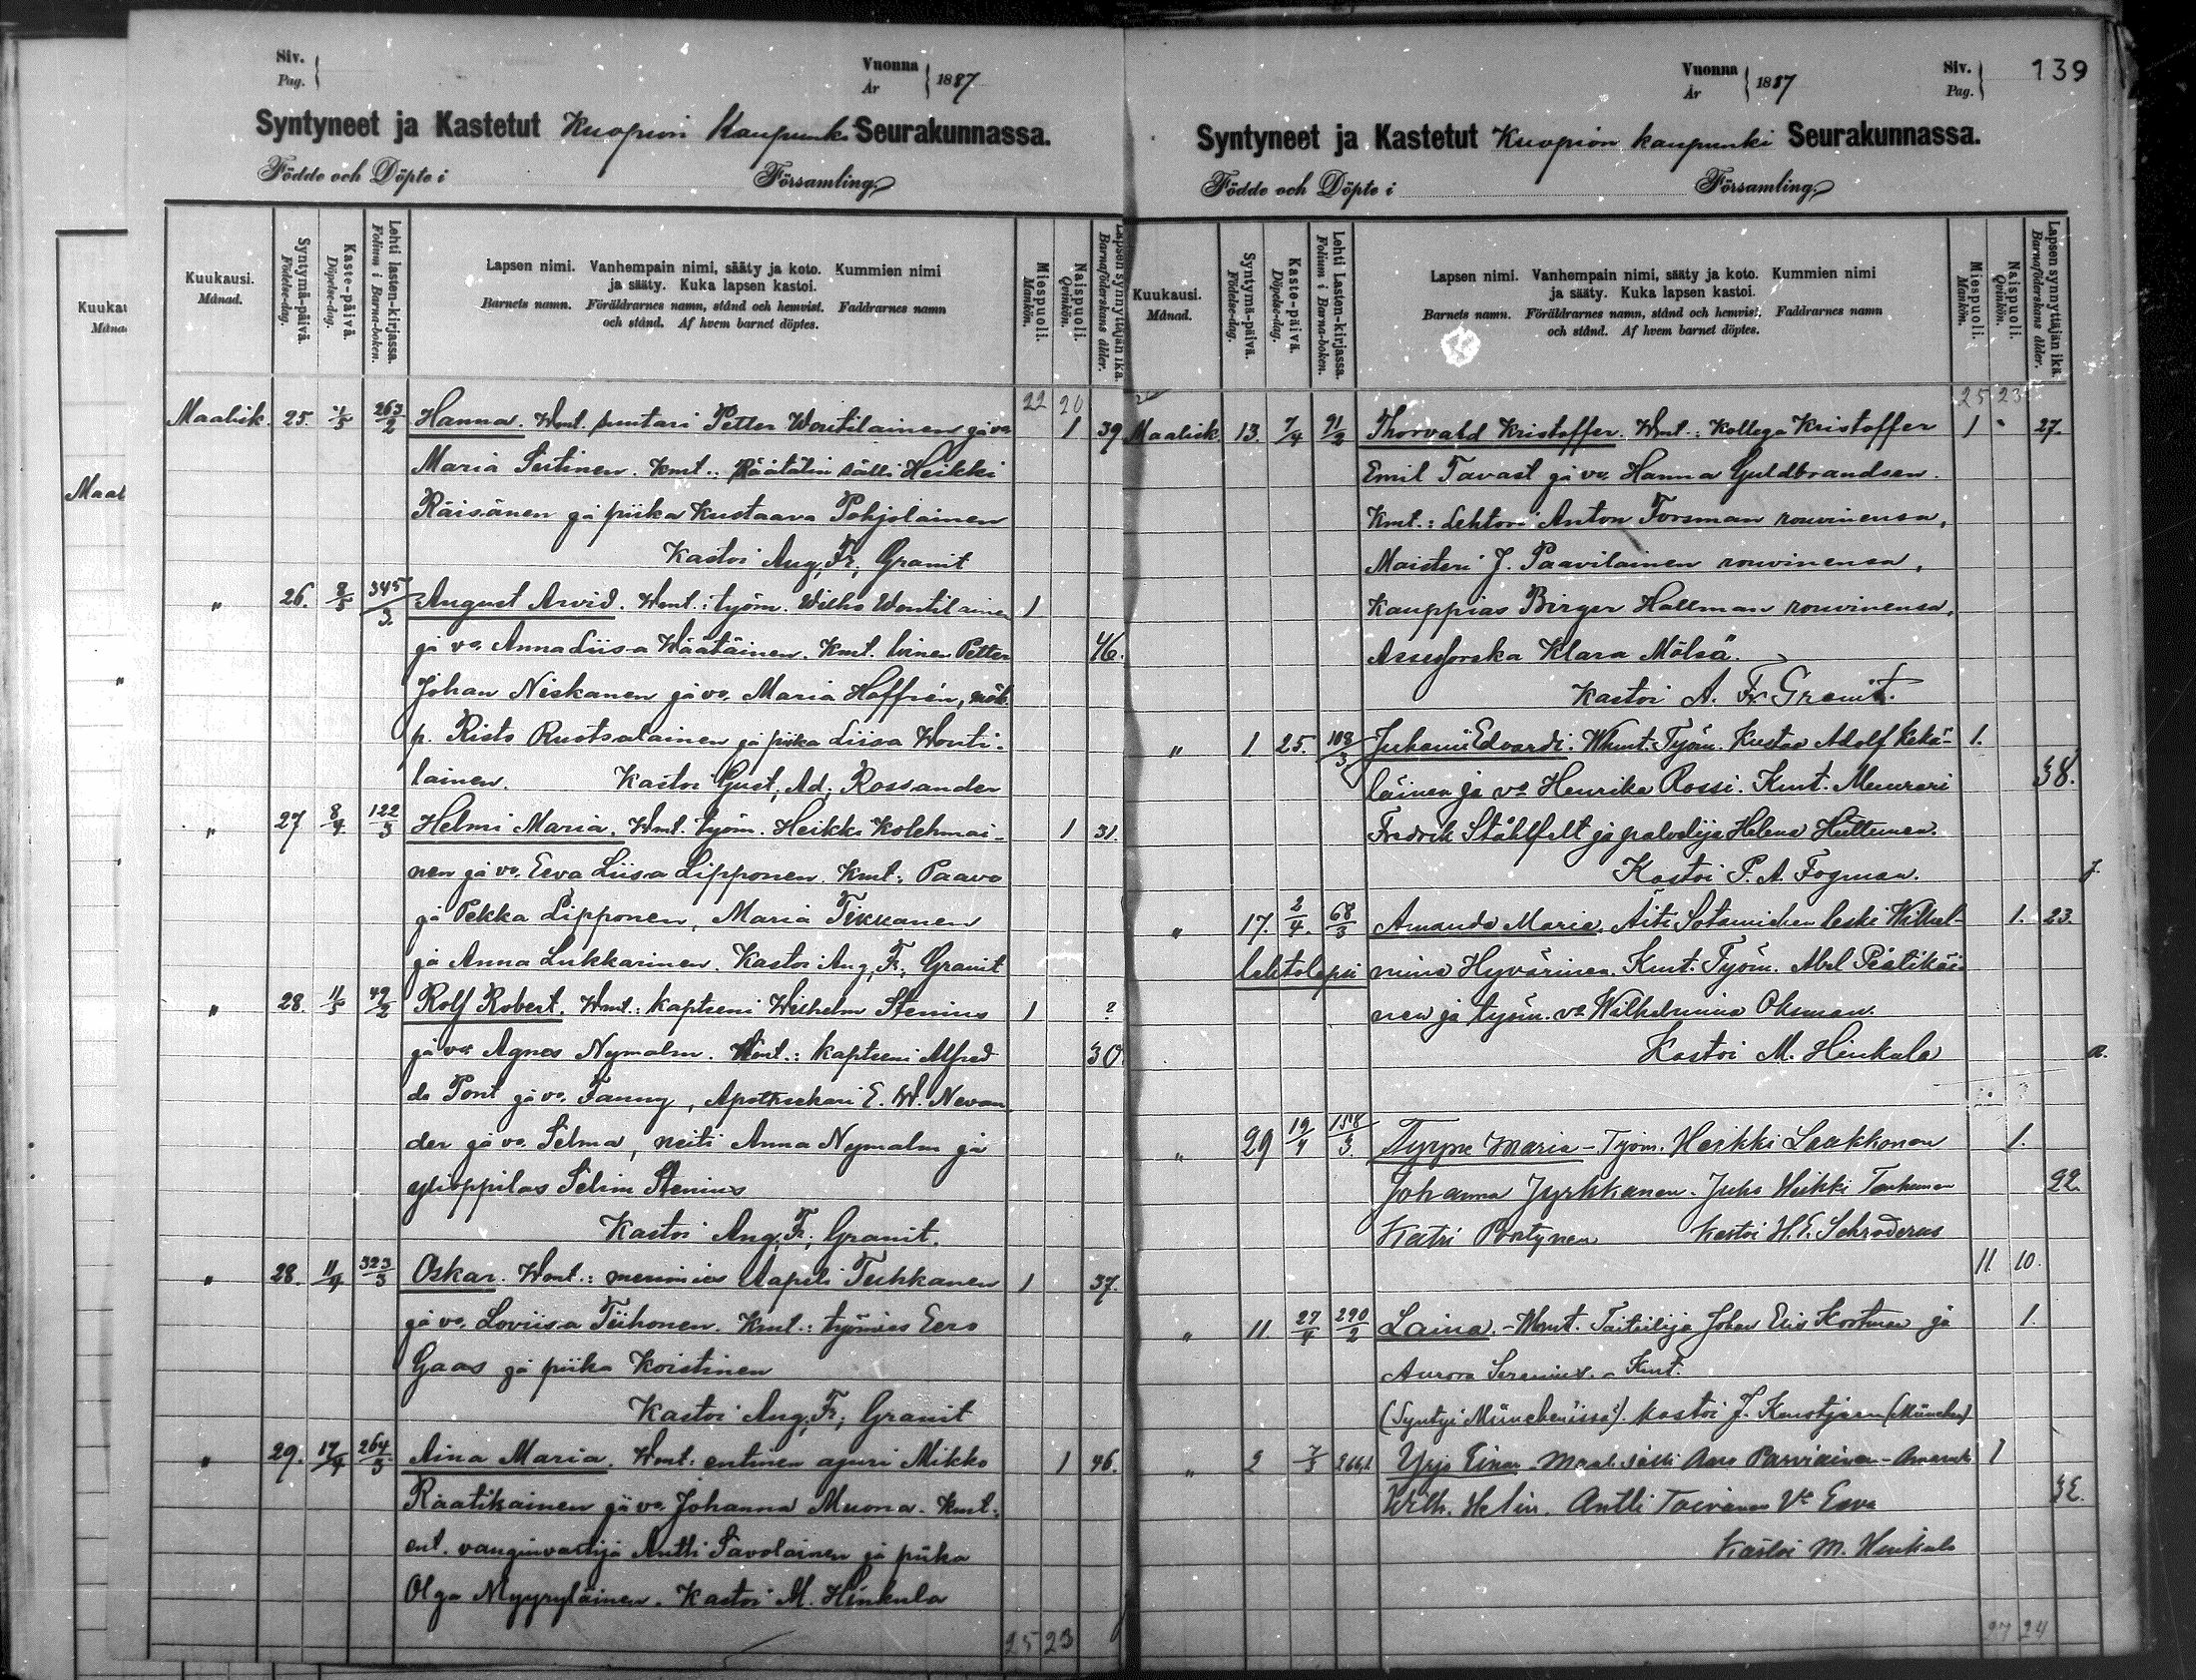 Siv.
Pag.
Vuonna
År
1887
Syntyneet ja Kastetut Kuopion Kaupunki Seurakunnassa.
Födde och Döpte i Församling
Kuukausi.
Månad.
Syntymä-päivä.
Födelse-dag.
Kaste-päivä.
Döpelse-dag.
Lehti lasten-kirjassa.
Folium i Barna-boken.
Lapsen nimi. Vanhempain nimi, sääty ja koto. Kummien nimi
ja sääty. Kuka lapsen kastoi.
Barnets namn. Föräldrarnes namn, stånd och hemvist. Faddrarnes namn
och stånd. Af hvem barnet döptes.
Miespuoli.
Mankön.
Naispuoli.
Qvinkön.
Lapsen synnyttäjän ikä.
Barnaföderskans ålder.
22 20
Maalisk. 25. 263/2 Hanna. Wmt. suutari Petter Woutilainen ja vo 1 39
Maria Sutinen. Kmt.: Räätälin sälli Heikki
Räisänen ja piika Kustaava Pohjolainen
Kastoi Aug. Fr. Granit
" 26. 345/3 August Arvid. Wmt.: työm. Wilho Woutilainen 1
ja vo. Anna Liisa Wäätäinen. Kmt. Petter 46.
Johan Niskanen ja vo. Maria Hoffrén, mök.
p. Risto Ruotsalainen ja piika Liisa Wouti-
lainen. Kastoi Gust. Ad. Rossander
" 27 8/4 122/3 Helmi Maria. Wmt. työm. Heikki Kolehmai- 1 31.
nen ja vo. Eeva Liisa Lipponen. Kmt.: Paavo
ja Pekka Lipponen, Maria Tikkanen
ja Anna Lukkarinen. Kastoi Aug. Fr. Granit
" 28. 49/2 Rolf Robert. Wmt.: kapteeni Wilhelm Stenius 1 ?
ja vo. Agnes Nymalm. Kmt.: kapteeni Alfred 30.
de Pont ja vo. Fanny, Apothekari E. W. Nevan
der ja vo. Selma, neiti Anna Nymalm ja
ylioppilas Selim Stenius
Kastoi Aug. Fr. Granit.
" 28. 11/4 323/3 Oskar. Wmt.: merimies Aapeli Tuhkanen 1 37.
ja vo. Loviisa Tiihonen. Kmt.: työmies Eero
Gaas ja piika Koistinen
Kastoi Aug. Fr. Granit
" 29. 17/4 264/3 Aina Maria. Wmt: entinen ajuri Mikko 1 46.
Räätikainen ja vo. Johanna Muona. Kmt.:
ent. vanginvartija Antti Savolainen ja piika
Olga Myyryläinen. Kastoi M. Hinkula
25 23
Vuonna
År
1887
Siv.
Pag.
139
Syntyneet ja Kastetut Kuopion kaupunki Seurakunnassa.
Födde och Döpte i Församling.
Kuukausi.
Månad.
Syntymä-päivä.
Födelse-dag.
Kaste-päivä.
Döpelse-dag.
Lehti Lasten-kirjassa.
Folium i Barna-boken.
Lapsen nimi. Vanhempain nimi, sääty ja koto. Kummien nimi
ja sääty. Kuka lapsen kastoi.
Barnets namn. Föräldrarnes namn, stånd och hemvist. Faddrarnes namn
och stånd. Af hvem barnet döptes.
Miespuoli.
Mankön.
Naispuoli.
Qvinkön.
Lapsen synnyttäjän ikä.
Barnaföderskans ålder.
25 23
Maalisk. 13. 7/4 Thorvald Kristoffer. Wmt.: Kollega Kristoffer 1 " 27.
Emil Tavast ja vo. Hanna Guldbrandsen.
Kmt.: Lehtori Anton Forsman rouvinensa,
Maisteri J. Paavilainen rouvinensa,
Kauppias Birger Hallman rouvinensa,
Assessorska Klara Mölsä.
Kastoi A. Fr. Granit.
" 1 25. 108/3 Juhani Edvardi. Wmt. Työm. Kustaa Adolf Kekä- 1.
läinen ja vo Henrika Rossi. Kmt. Muurari 38.
Fredrik Ståhlfelt ja palvelija Helena Huttunen.
Kastoi P. A. Fogman.
" 17. 2/4. 68/3 Amanda Maria. Äiti Sotamiehen leski Wilhel- 1. 23.
lehtolapsi mina Hyvärinen. Kmt. Työm. Abel Päätikäi-
nen ja työm. vo Wilhelmina Oksman.
Kastoi M. Hinkula
" 29 19/4 158/3. Tyyne Maria - Työm. Heikki Laakkonen 1.
Johanna Jyrkkänen. Juho Heikki 22.
Katri Kastoi H. E. Schroderus
11. 10.
" 11 27/4 290/2 Laina. - Wmt. Taiteilija Johan Eric Kortman ja 1.
Aurora Serenius. - Kmt.
(Syntyi Münchenissä). Kastoi J. (München)
" 2 7/5 Yrjö Einar Maal. sälli Aaro Parviainen - 1
Wilh. Helin. Antti Toivanen Vo Eeva
Kastoi M. Hinkula
27 24